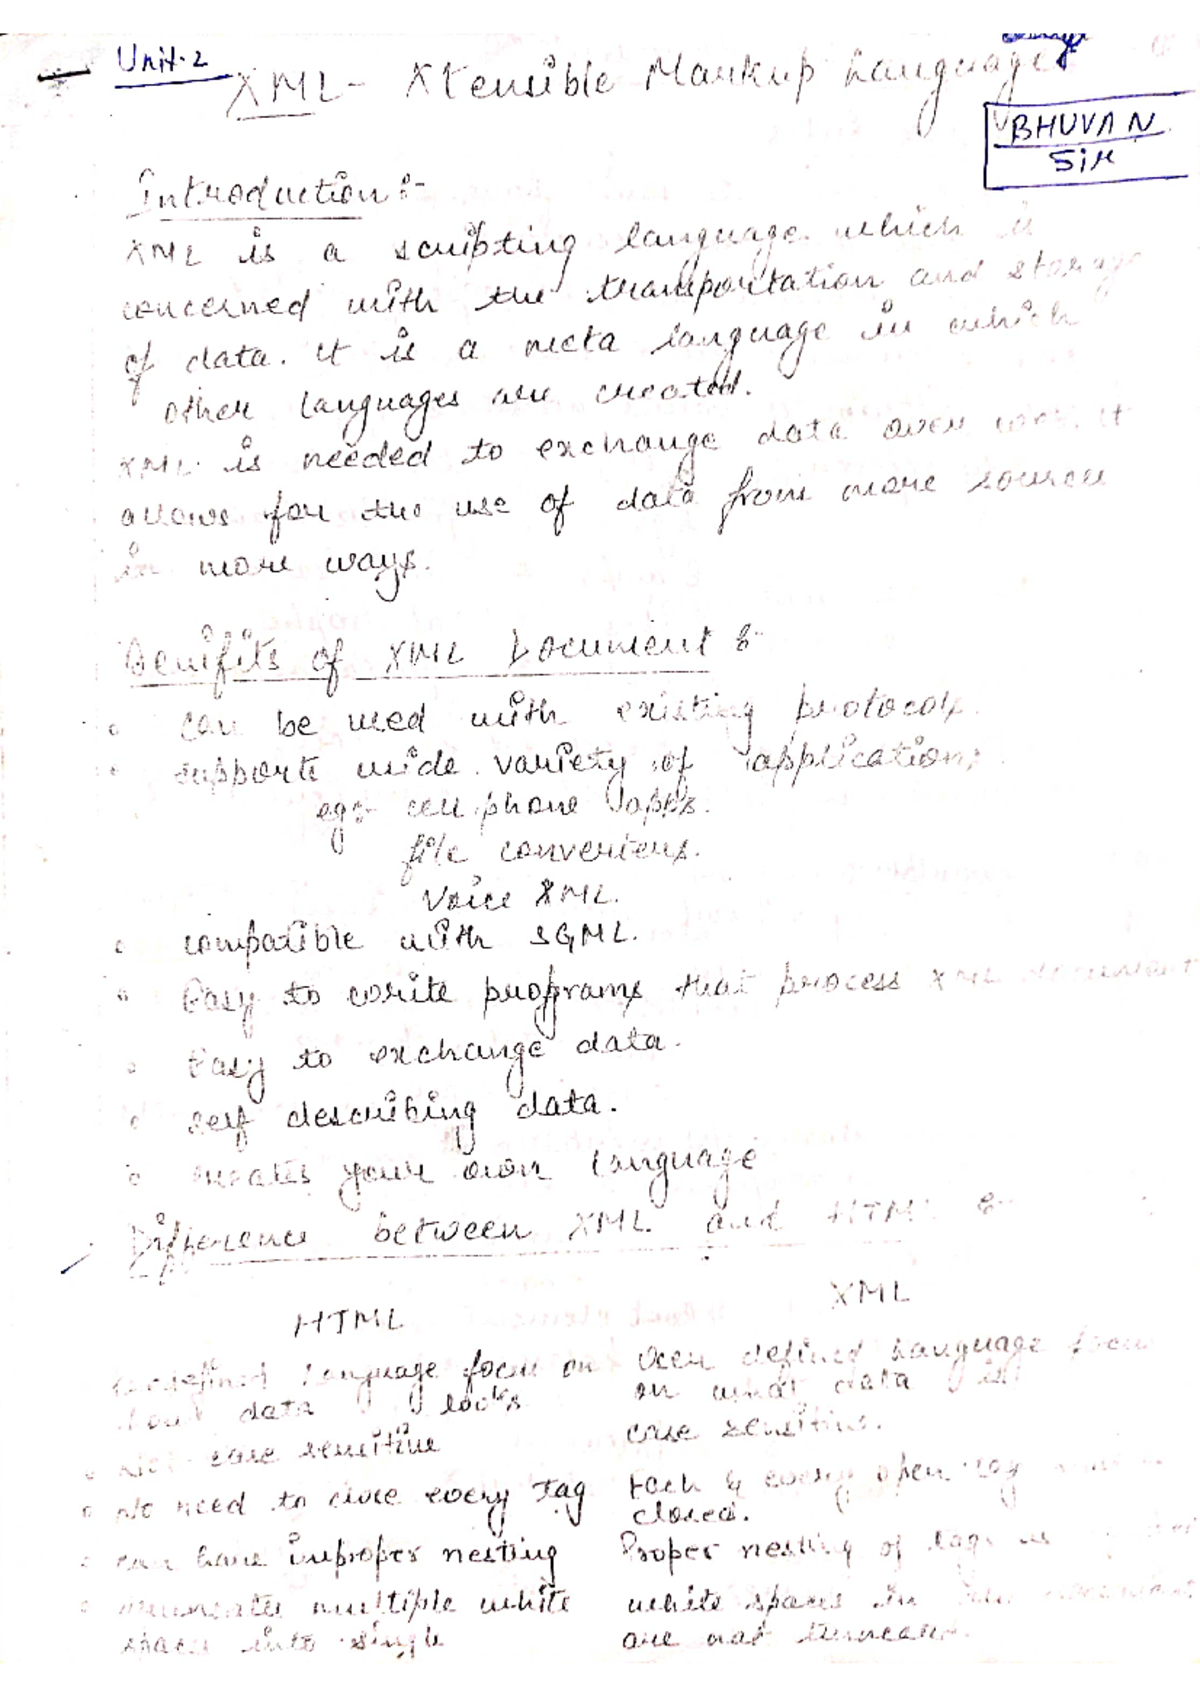 Unit-2
XML - Xtensible Markup Language
BHUVAN
Sir
Introduction :-
XML is a scripting language which is
concerned with the transportation and storage
of data. it is a meta language in which
other languages are created.
XML is needed to exchange data over it
allows for the use of data from more source
in more ways.
Benifits of XML Document :-
can be used with existing protocols.
supports wide variety of applications
eg:- cell phone apps.
file converters.
Voice XML.
compatible with SGML.
Easy to write programs that process XML document
Easy to exchange data.
self describing data.
creates your own language
Difference between XML and HTML :-
HTML XML
language focus on User defined Language focus
data looks on what data is
not case sensitive case sensitive.
No need to close every Tag Each & every open tag
closed.
can have improper nesting Proper nesting of tags is
multiple white white spaces in document
spaces into single are not